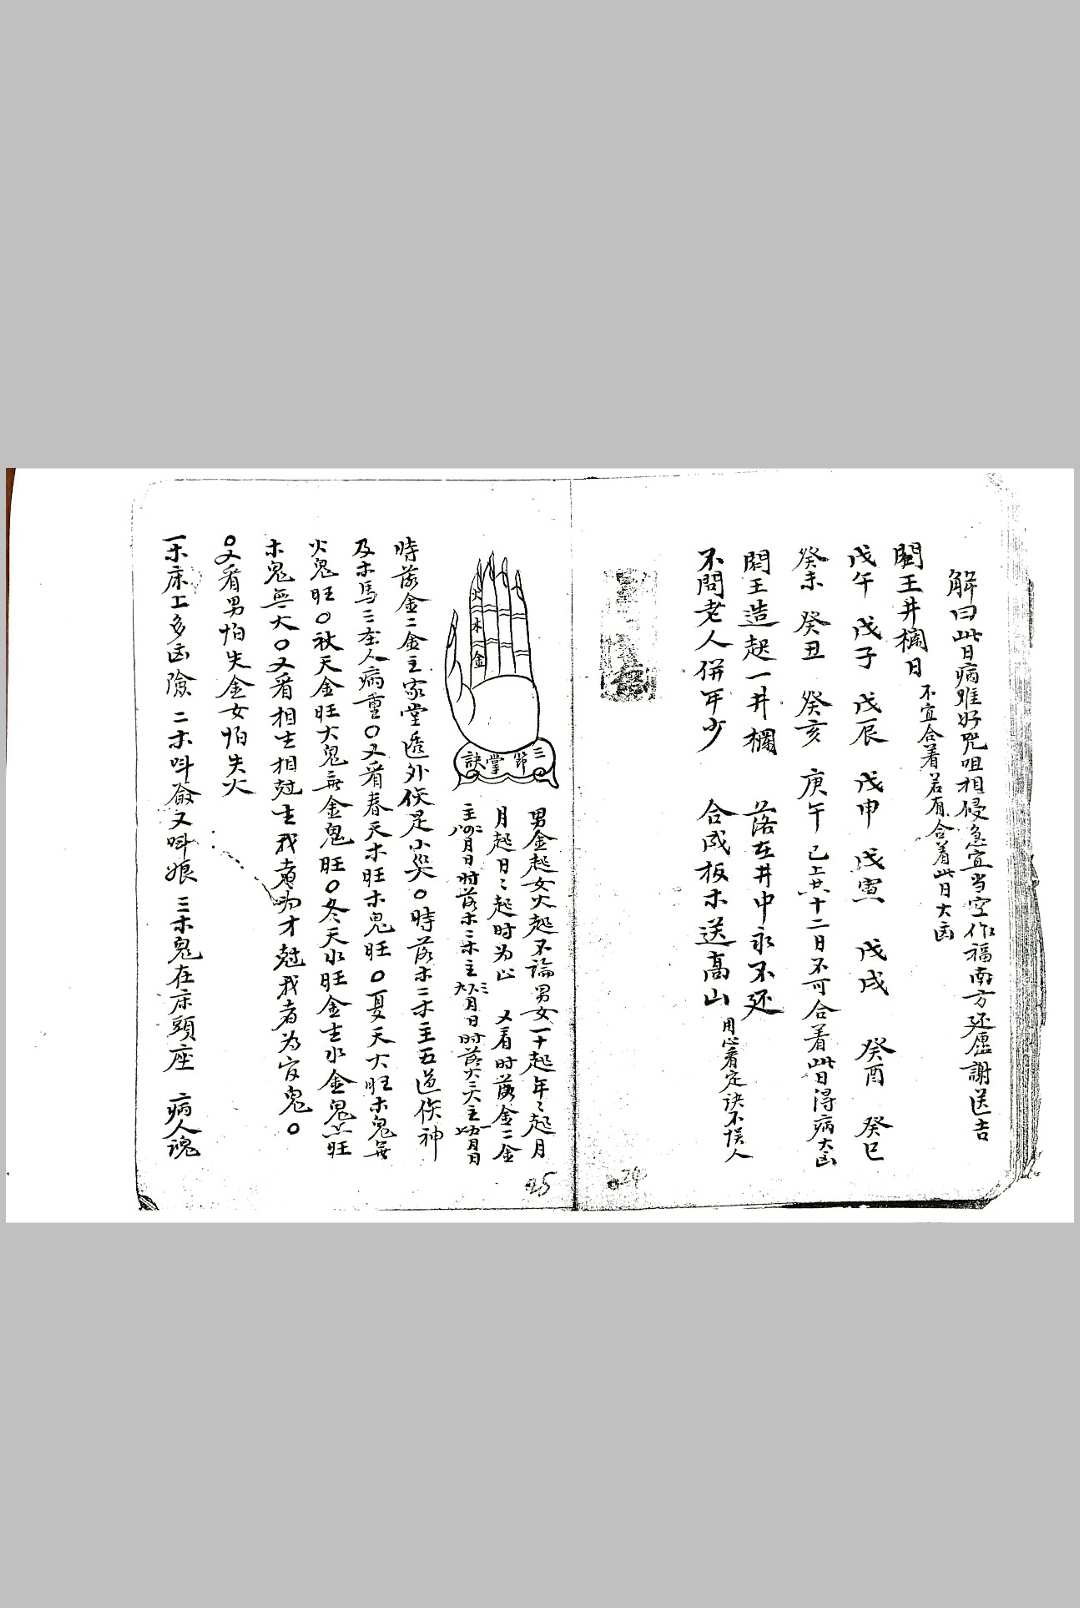 解曰此日病难好咒咀相侵急宜当空作福南方还愿謝送吉
閻王井欄日 不宜合着若有合着此日大凶
戊午 戊子 戊辰 戊申 戊寅 戊戌 癸酉 癸巳
癸未 癸丑 癸亥 庚午 已上共十二日不可合着此日得病大凶
閻王造起一井欄 落在井中永不还
不問老人併年少 合成板木送高山 用心看定訣不悮人
24
三節掌訣
火
木
金
男金起女火起不論男女一十起年〻起月
月起日〻起时为止 又看时落金二金
主 月日时落木二木主 月日时落火三火主 月日
時落金二金主家堂 外 是小 〇時落木二木主五道 神
及木馬三 人病重〇又看春天木旺木鬼旺〇夏天火旺木鬼無
火鬼旺〇秋天金旺火鬼無金鬼旺〇冬天水旺金生水金鬼 旺
木鬼無火〇又看相生相尅生我者为才尅我者为官鬼〇
〇又看男怕失金女怕失火
一木床上多凶險 二木叫爺又叫娘 三木鬼在床頭座 病人魂
25